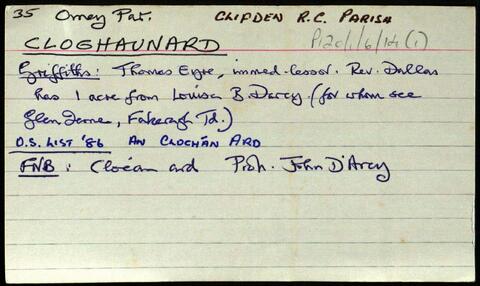 35 Omey Par. CLIFDEN R.C. PARISH
CLOGHAUNARD P120/1/6/14(1)
Griffiths: Thomas Eyre, immed. lessor. Rev. Dallas
has 1 acre from Louisa B. Darcy (for whom see
Glen Td.)
O.S. LIST '86 AN CLOCHÁN ARD
FNB: Cloċan ard Prop. John D'Arcy